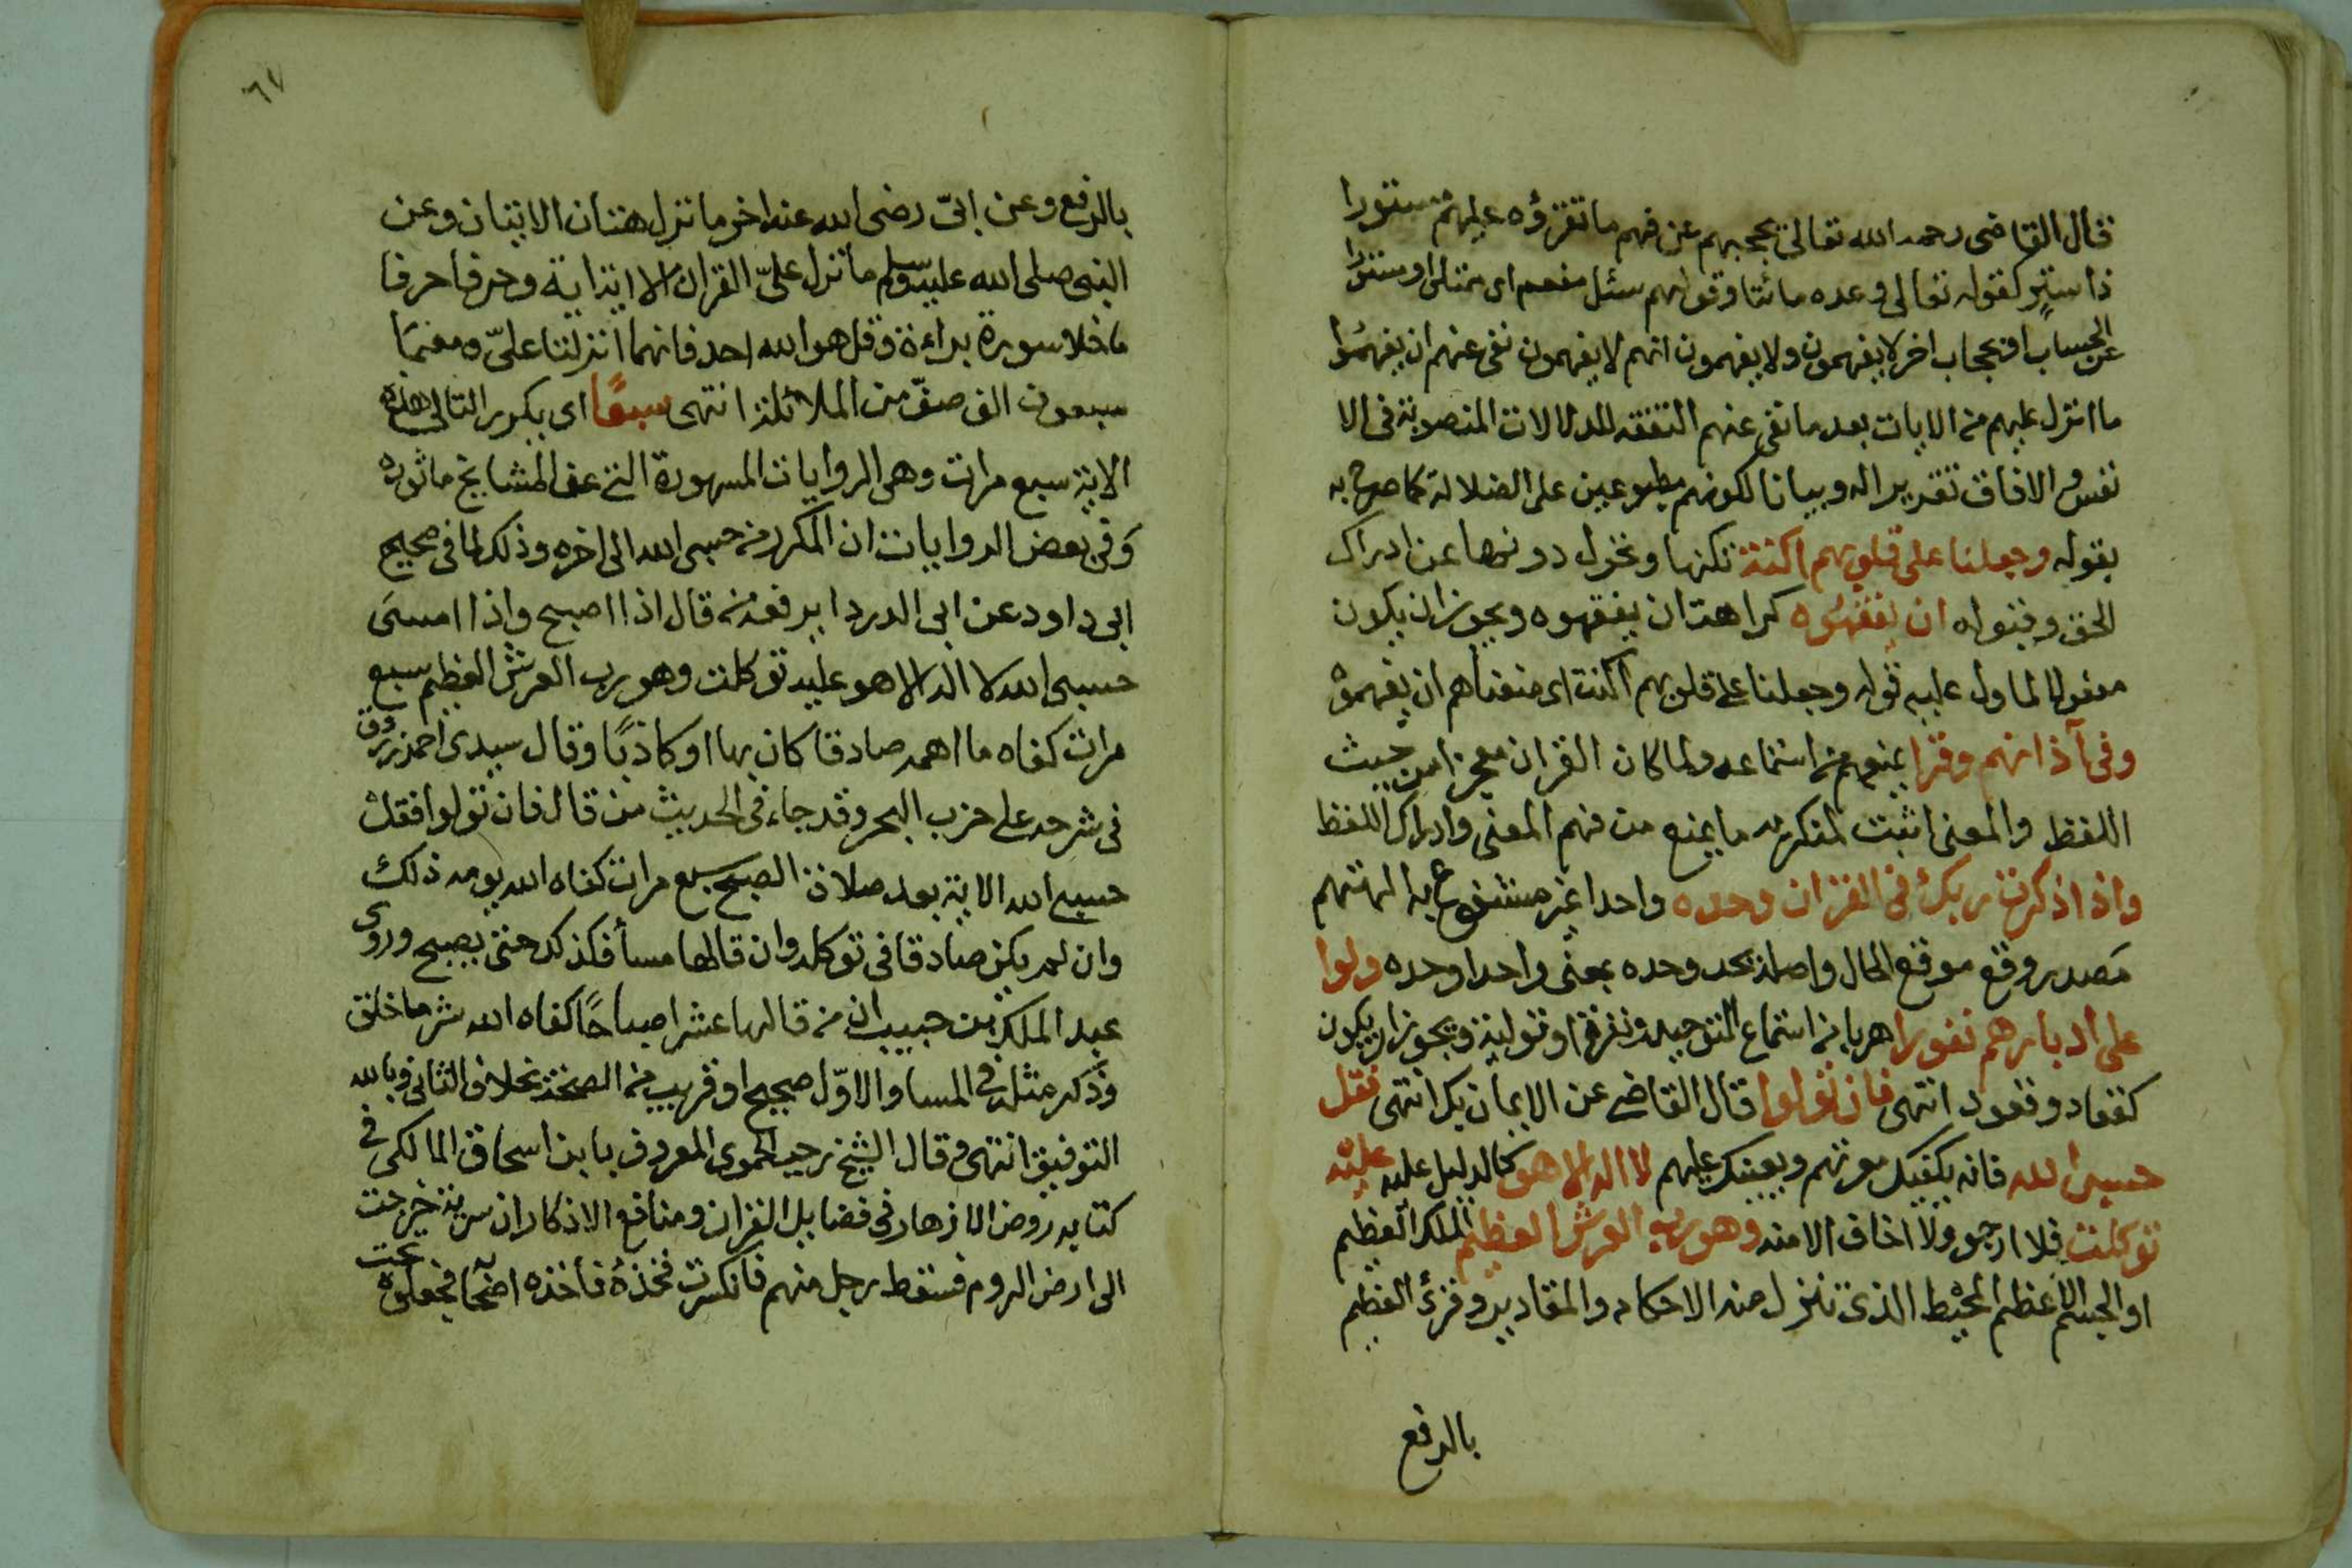 قال القاضى رحمه الله تعالى يحجبهم عن فهم ما تقرؤه عليهم مستورا
ذا ستر كقوله تعالى وعده مائتا وقولهم سئل مفعم اى ممتلئ او مستورا
عن الحساب او بحجاب اخر لا يفهمون ولا يفهمون انهم لا يفهمون نفى عنهم ان يفهموا
ما انزل عليهم من الايات بعد ما نفى عنهم التفقه للدلالات المنصوبة فى الا
نفس والافاق تقريرا له وبيانا لكونهم مطبوعين على الضلالة كما صرح به
بقوله وجعلنا على قلوبهم اكنة تكنها وتحول دونها عن ادراك
الحق وقبوله ان يفقهوه كراهة ان يفقهوه ويجوز ان يكون
مفعولا لما دل عليه قوله وجعلنا على قلوبهم اكنة اى منعناهم ان يفهموه
وفى آذانهم وقرا يمنعهم من استماعه ولما كان القران معجزا من حيث
اللفظ والمعنى اثبت لمنكريه ما يمنع من فهم المعنى وادراك اللفظ
واذا ذكرت ربك فى القران وحده واحدا غير مشفوع به الهتهم
مصدر وقع موقع الحال واصله يحد وحده بمعنى واحدا وحده ولوا
على ادبارهم نفورا هربا من استماع التوحيد ونفرة او تولية ويجوز ان يكون
كقعاد وقعود انتهى فان تولوا قال القاضى عن الايمان بك انتهى فقل
حسبى الله فانه يكفيك معرتهم ويعينك عليهم لا اله الا هو كالدليل عليه عليه
توكلت فلا ارجو ولا اخاف الا منه وهو رب العرش العظيم الملك العظيم
او الجسم الاعظم المحيط الذى تنزل منه الاحكام والمقادير وقرئ العظيم
بالرفع
٦٧
بالرفع وعن ابىّ رضى الله عنه اخر ما نزل هتان الايتان وعن
النبى صلى الله عليه وسلم ما نزل علىّ القران الا اية اية وحرفا حرفا
ما خلا سورة براءة وقل هو الله احد فانهما انزلتا علىّ ومعهما
سبعون الف صف من الملائكة انتهى سبعًا اى يكرر التالى هذه
الاية سبع مرات وهى الروايات المشهورة التى عن المشايخ ماثوره
وفى بعض الروايات ان المكرر من حسبى الله الى اخره وذلك لما فى صحيح
ابى داود عن ابى الدرداء يرفعه من قال اذا اصبح واذا امسى
حسبى الله لا اله الا هو عليه توكلت وهو رب العرش العظيم سبع
مرات كفاه ما اهمه صادقا كان بها او كاذبًا وقال سيدى احمد زروق
فى شرحه على حزب البحر وقد جاء فى الحديث من قال فان تولوا فقل
حسبى الله الاية بعد صلاة الصبح سبع مرات كفاه الله يومه ذلك
وان لم يكن صادقا فى توكله وان قالها مساء فكذلك حتى يصبح وروى
عبد الملك بن حبيب ان من قالها عشرا صباحًا كفاه الله شر ما خلق
وذكر مثله فى المسا والاوّل صحيح او قريب من الصحة بخلاف الثانى وبالله
التوفيق انتهى وقال الشيخ رجب الحموى المعروف بابن اسحاق المالكى فى
كتابه روض الازهار فى فضايل القران ومنافع الاذكار ان سرية خرجت
الى ارض الروم فسقط رجل منهم فانكسرت فخذهُ فأخذه اصحابه فجعلوه تحت